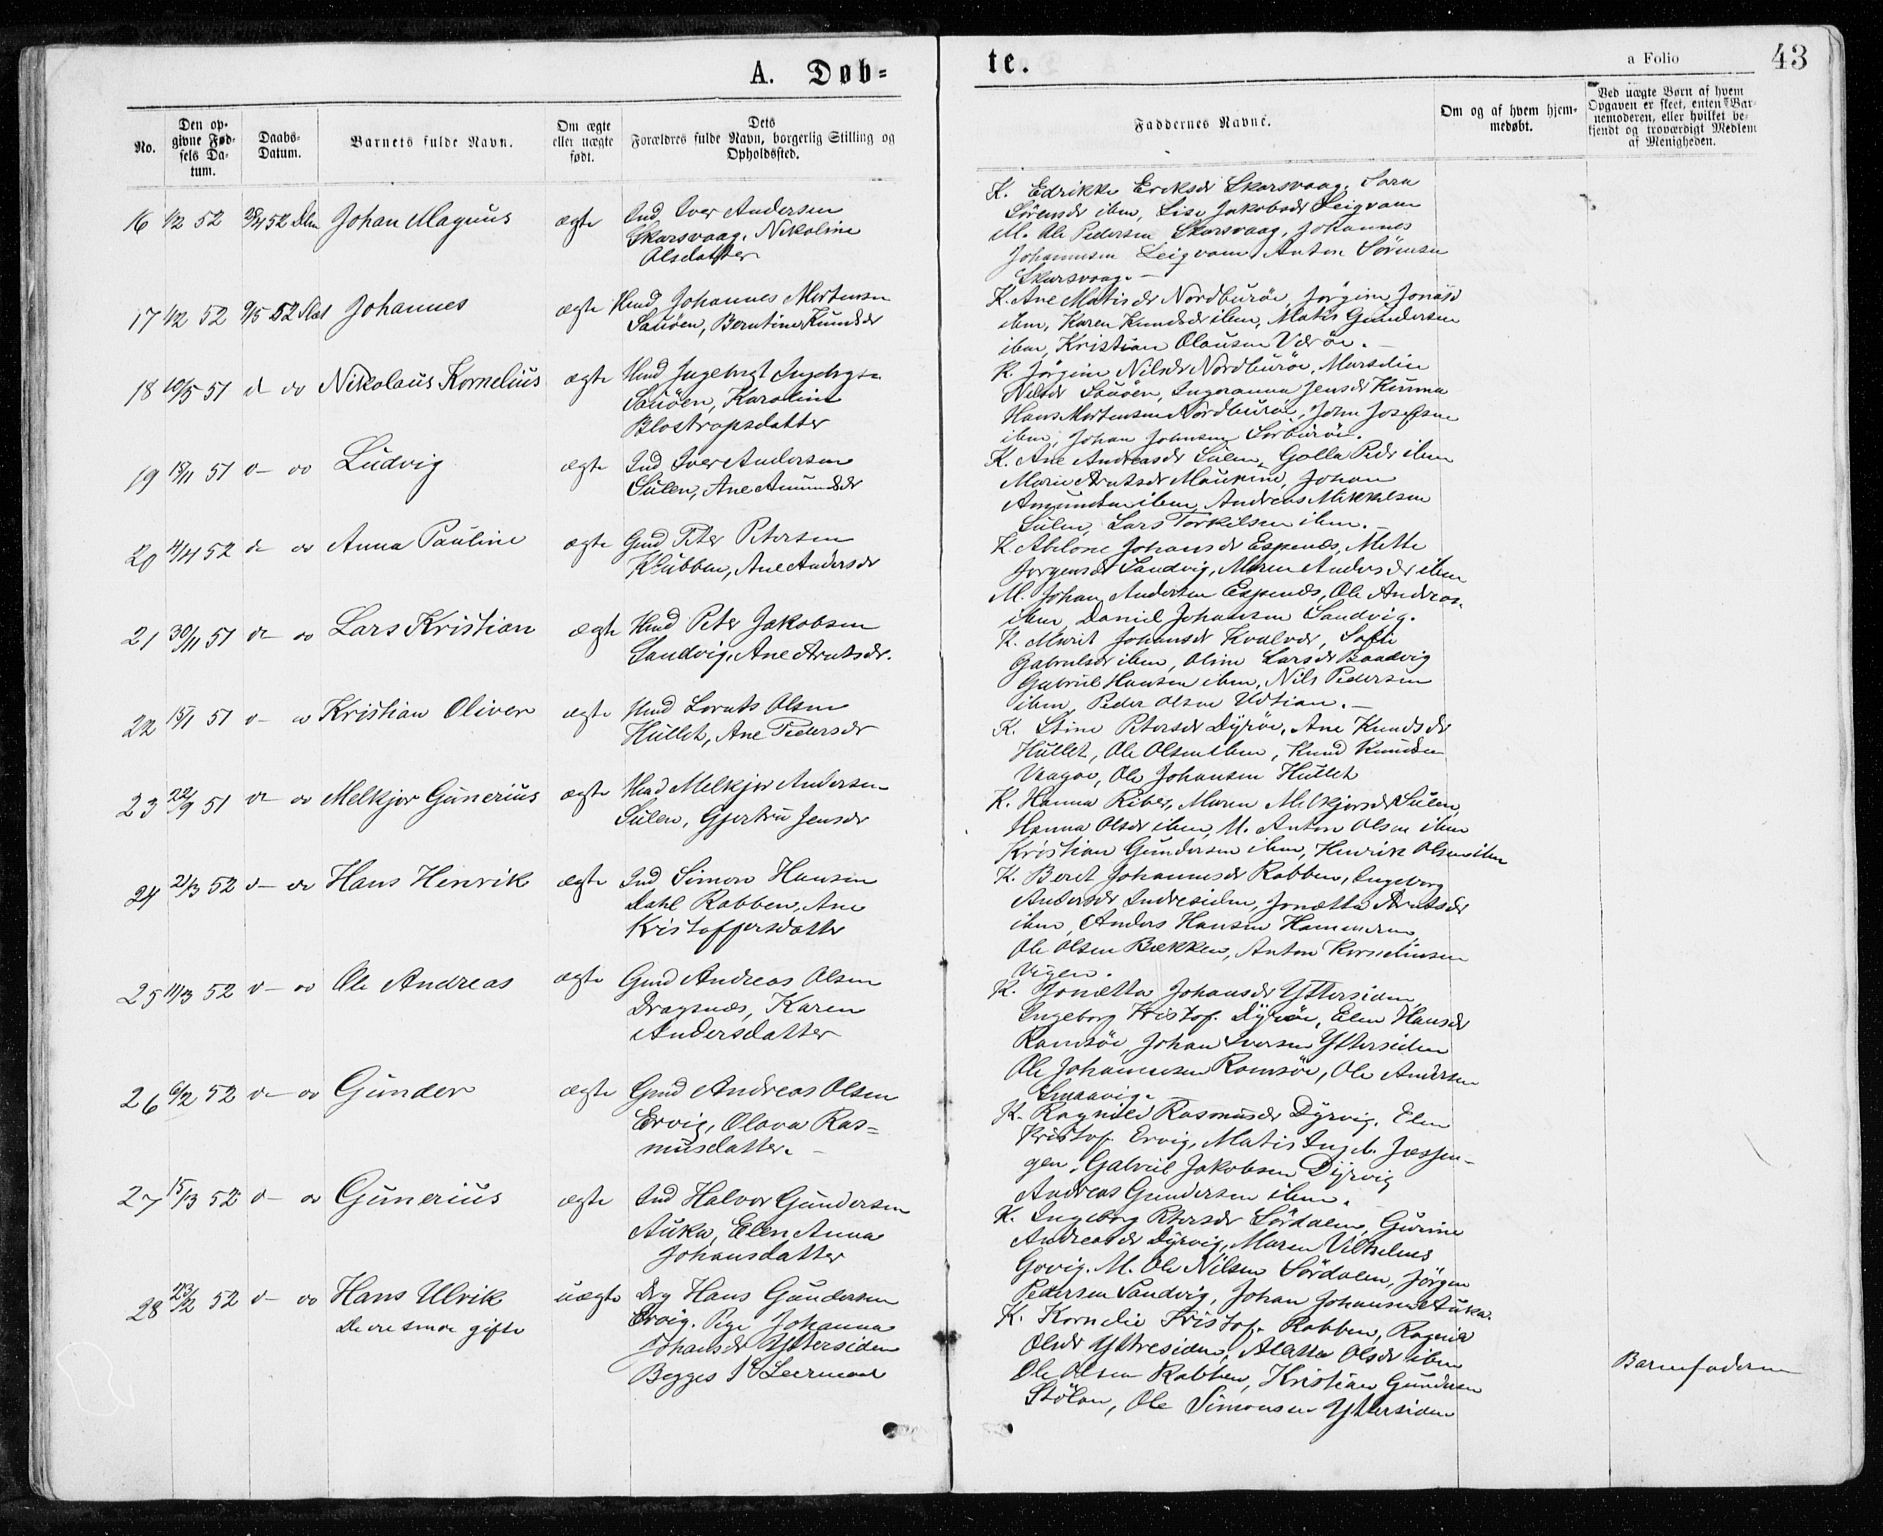 A. Døb= te.
a Folio 43
No.
Den op-
givne Fød-
sels Da-
tum.
Daabs-
Datum.
Barnets fulde Navn.
Om ægte
eller uægte
født.
Dets
Forældres fulde Navn, borgerlig Stilling og
Opholdssted.
Faddernes Navne.
Om og af hvem hjem-
medøbt.
Ved uægte Børn af hvem
Opgaven er skeet, enten Bar-
nemoderen, eller hvilket be-
kjendt og troværdigt Medlem
af Menigheden.
16 1/2 52 Johan Magnus ægte Ind. Iver Andersen
Skarsvaag, Nikoline
Olsdatter
K. Edrikke Eriksdr Skarsvaag, Sara
Sørensdr ibm, Lise Jakobsdr Leigvam
M. Ole Pedersen Skarsvaag, Johannes
Johannesen Leigvam, Anton Sørensen
Skarsvaag.
17 1/2 52 9/5 52 Johannes ægte Hmd Johannes Mortensen
Sauøen, Berntine Knudsdr
K. Ane Matisdr Nordburøe, Jørgine Jonasd
ibm, Karen Knudsdr ibm, Matis Gundersen
ibm, Kristian Olausen Værøe.
18 10/5 51 d do Nikolaus Kornelius ægte Hmd Ingebrigt Ingebrigts.
Sauøen, Karoline
Blostropsdatter
K. Jørgine Nilsdr Nordburøe, Marselie
Nilsdr Sauøen, Ingeranna Jensdr Kunna
Hans Mortensen Nordburøe, John Josefsen
ibm, Johan Johnsen Sørburøe.
19 18/11 51 d- do Ludvig ægte Ind Iver Andersen
Sulen, Ane Amundsdr
K. Ane Andreasdr Sulen, Golla Pedr ibm
Marie Arntsdr Maurine, Johan
Amundsen ibm, Andreas Mikkelsen
Sulen, Lars Torkilsen ibm.
20 4/4 52 d- do Anna Pauline ægte Gmd Peter Petersen
Klubben, Ane Andersdr
K. Abelone Johansdr Espenæs, Mette
Jørgensdr Sandvig, Maren Andersdr ibm
M. Johan Andersen Espenæs, Ole Andreas.
ibm, Daniel Johansen Sandvig.
21 30/11 51 d- do Lars Kristian ægte Hmd Peter Jakobsen
Sandvig, Ane Arntsdr.
K. Marit Johansdr Kvalvær, Sofie
Gabrielsdr ibm, Oline Larsdr Baadvig
Gabriel Hansen ibm, Nils Pedersen
ibm, Peder Olsen Udtian.
22 15/1 51 d- do Kristian Oliver ægte Hmd Lornts Olsen
Hullet, Ane Pedersdr
K. Stine Petersdr Dyrøe, Ane Knudsdr
Hullet, Ole Olsen ibm, Knud Knudsen
Vaagøe, Ole Johansen Hullet
23 22/9 51 d- do Melkjor Gunerius ægte Hmd Melkjor Andersen
Sulen, Gjertru Jensdr
K. Hanna Riber, Maren Melkjorsdr Sulen,
Hanna Olsdr ibm, M. Anton Olsen ibm
Kristian Gundersen ibm, Henrik Olsen ibm
24 21/3 52 d- do Hans Henrik ægte Ind Simon Hansen
Dahl Rabben, Ane
Kristoffersdatter
K. Beret Johannesdr Rabben, Ingeborg
Andersdr Indresiden, Jonætta Arntsdr
ibm, Anders Hansen Hammeren
Ole Olsen Bækken, Anton Korneliusen
Vigen.
25 14/3 52 d- do Ole Andreas ægte Gmd Andreas Olsen
Dragsnæs, Karen
Andersdatter
K. Jonætta Johansdr Yttersiden,
Ingeborg Kristof. Dyrøe, Elen Hansdr
Ramsøe, Johan Iversen Yttersiden
Ole Johannesen Ramsøe, Ole Andersen
Smaavig.
26 6/2 52 d- do Gunder ægte Gmd Andreas Olsen
Ervig, Olava Ras=
musdatter.
K. Ragnild Rasmusdr Dyrvig, Elen
Kristof. Ervig, Matis Ingeb. Jæssen-
gen, Gabriel Jakobsen Dyrvig
Andreas Gundersen ibm.
27 15/3 52 d- do Gunerius ægte Ind Halvor Gundersen
Auka, Elen Anna
Johansdatter
K. Ingeborg Petersdr Sørdalen, Gurine
Andreasdr Dyrvig, Maren Vilhelms
Govig. M. Ole Nilsen Sørdalen, Jørgen
Pedersen Sandvig, Johan Johansen Auka.
28 23/2 52 d- do Hans Ulrik uægte Dreg Hans Gundersen
De ere senere gifte Ervig. Pige Johanna
Johansdr Yttersiden
Begges 1ste Leiermaal
K. Kornelia Kristof. Rabben, Ragnild
Olsdr Yttresiden, Aletta Olsdr ibm
Ole Olsen Rabben, Kristian Gundersen
Stølan, Ole Simonsen Yttersiden
Barnefaderen